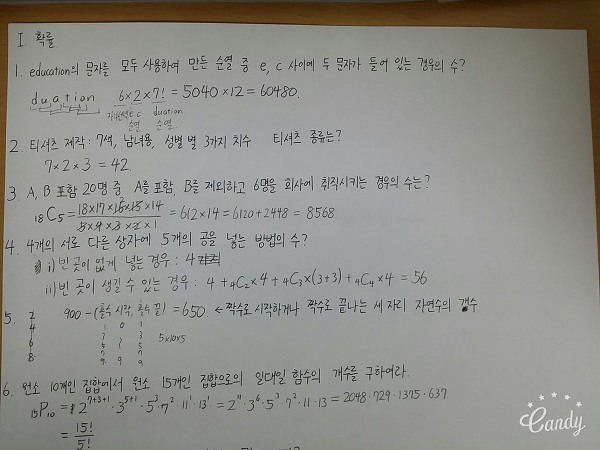 I. 확률.
1. education의 문자를 모두 사용하여 만든 순열 중 e, c 사이에 두 문자가 들어 있는 경우의 수?
duation 6×2×7! = 5040×12 = 60480.
e c duation
순열 순열
2. 티셔츠 제작 : 7색, 남녀용, 성별 별 3가지 치수 티셔츠 종류는?
7×2×3 = 42.
3 A, B 포함 20명 중 A를 포함, B를 제외하고 6명을 회사에 취직시키는 경우의 수는?
18C5 = 18×17×16×15×14 / 5×4×3×2×1 = 612×14 = 6120+2448 = 8568
4. 4개의 서로 다른 상자에 5개의 공을 넣는 방법의 수?
i) 빈 곳이 없게 넣는 경우 : 4
ii) 빈 곳이 생길 수 있는 경우 : 4 + 4C2×4 + 4C3×(3+3) + 4C4×4 = 56
5. 2 900 - (홀수 시작, 홀수 끝) = 650 ← 짝수로 시작하거나 짝수로 끝나는 세 자리 자연수의 갯수
4 1 0 1
6 3 3 5×10×5
8 9 9 9
6. 원소 10개인 집합에서 원소 15개인 집합으로의 일대일 함수의 개수를 구하여라.
15P10 = 2^7+3+1 · 3^5+1 · 5^3 · 7^2 · 11^1 · 13^1 = 2^11 · 3^6 · 5^3 · 7^2 · 11 · 13 = 2048 · 729 · 1375 · 637
= 15! / 5!
Candy